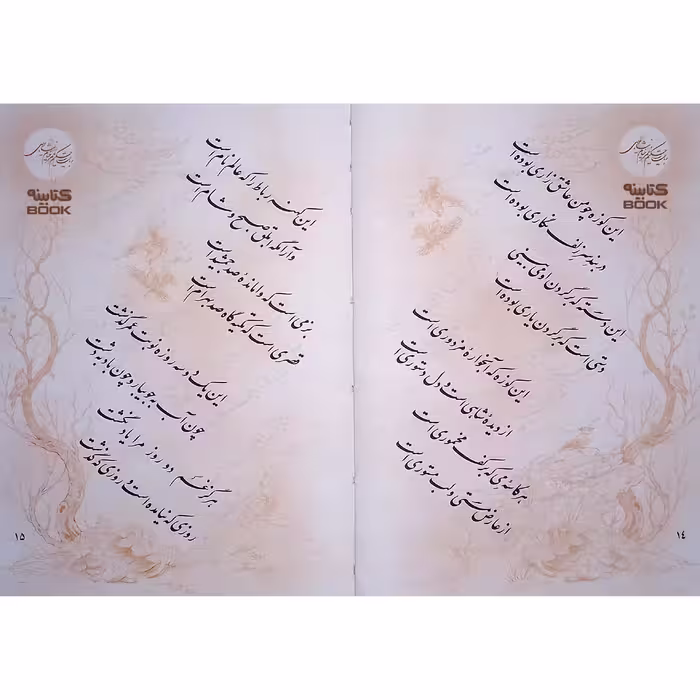 کتابینه
BOOK
این کوزه چو من عاشق زاری بوده است
در بند سر زلف نگاری بوده است
این دسته که بر گردن او می‌بینی
دستی است که بر گردن یاری بوده است
این کوزه که آبخواره مزدوری است
از دیده شاهی است و دل دستوری است
هر کاسه می که بر کف مخموری است
از عارض مستی و لب مستوری است
۱۴
کتابینه
BOOK
این کهنه رباط را که عالم نام است
و آرامگه ابلق صبح و شام است
بزمی است که وامانده صد جمشید است
قصری است که تکیه‌گاه صد بهرام است
این یک دو سه روزه نوبت عمر گذشت
چون آب به جویبار و چون باد به دشت
هرگز غم دو روز مرا یاد نگشت
روزی که نیامده است و روزی که گذشت
۱۵